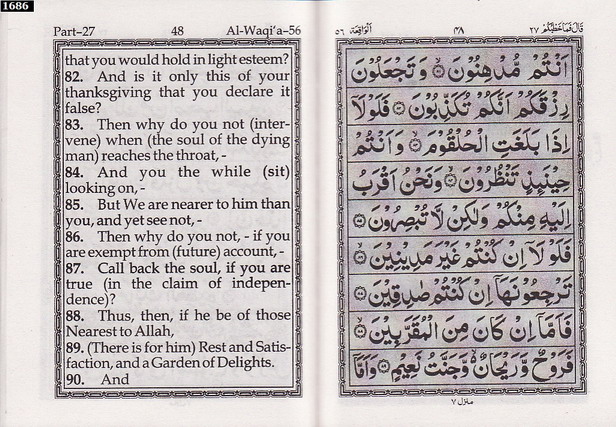 1686
Part-27 48 Al-Waqi'a-56
that you would hold in light esteem?
82. And is it only this of your
thanksgiving that you declare it
false?
83. Then why do you not (inter-
vene) when (the soul of the dying
man) reaches the throat, -
84. And you the while (sit)
looking on, -
85. But We are nearer to him than
you, and yet see not, -
86. Then why do you not, - if you
are exempt from (future) account, -
87. Call back the soul, if you are
true (in the claim of indepen-
dence)?
88. Thus, then, if he be of those
Nearest to Allah,
89. (There is for him) Rest and Satis-
faction, and a Garden of Delights.
90. And
قال فما خطبكم ٢٧ ٤٨ الواقعة ٥٦
اَنْتُمْ مُّدْهِنُوْنَ ۝ وَتَجْعَلُوْنَ
رِزْقَكُمْ اَنَّكُمْ تُكَذِّبُوْنَ ۝ فَلَوْلَاۤ
اِذَا بَلَغَتِ الْحُلْقُوْمَ ۝ وَاَنْتُمْ
حِيْنَىِٕذٍ تَنْظُرُوْنَ ۝ وَنَحْنُ اَقْرَبُ
اِلَيْهِ مِنْكُمْ وَلٰكِنْ لَّا تُبْصِرُوْنَ ۝
فَلَوْ لَاۤ اِنْ كُنْتُمْ غَيْرَ مَدِيْنِيْنَ ۝
تَرْجِعُوْنَهَاۤ اِنْ كُنْتُمْ صٰدِقِيْنَ ۝
فَاَمَّاۤ اِنْ كَانَ مِنَ الْمُقَرَّبِيْنَ ۝
فَرَوْحٌ وَّرَيْحَانٌ وَّجَنَّتُ نَعِيْمٍ ۝ وَاَمَّاۤ
منزل ٧